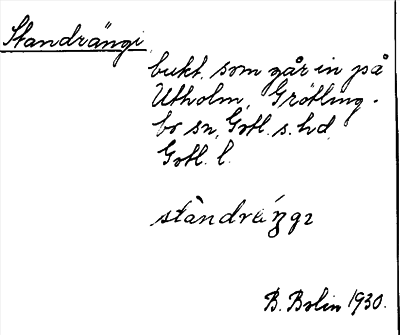 Standrängi
bukt, som går in på
Utholm, Grötling-
bo sn, Gotl. s. hd,
Gotl. l.
B. Bolin 1930.